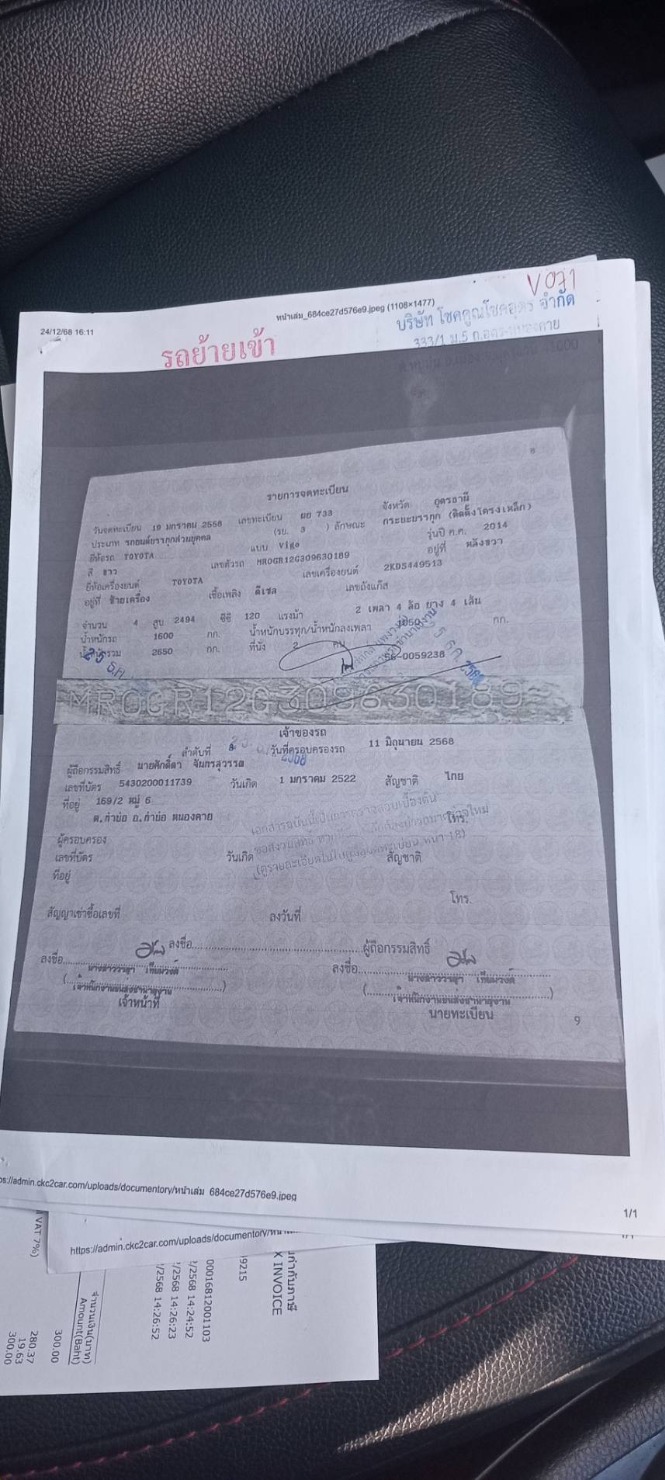 V 071
24/12/68 16:11
หน้าเล่ม_684ce27d576e9.jpeg (1108×1477)
บริษัท โชคคูณโชคอุดร จำกัด
333/1 ม.5 ถ.อุดร-หนองคาย
รถย้ายเข้า
รายการจดทะเบียน
วันจดทะเบียน 10 มกราคม 2556 เลขทะเบียน ผย 733 จังหวัด อุดรธานี
ประเภท รถยนต์บรรทุกส่วนบุคคล (รย. 3 ) ลักษณะ กระบะบรรทุก (ติดตั้งโครงเหล็ก)
ยี่ห้อรถ TOYOTA แบบ Vigo รุ่นปี ค.ศ. 2014
สี ขาว เลขตัวรถ MR0GR12G309630189 อยู่ที่ หลังขวา
ยี่ห้อเครื่องยนต์ TOYOTA เลขเครื่องยนต์ 2KDS449513
อยู่ที่ ซ้ายเครื่อง เชื้อเพลิง ดีเซล เลขถังแก๊ส
จำนวน 4 สูบ 2494 ซีซี 120 แรงม้า 2 เพลา 4 ล้อ ยาง 4 เส้น
น้ำหนักรถ 1600 กก. น้ำหนักบรรทุก/น้ำหนักลงเพลา 1050 กก.
น้ำหนักรวม 2650 กก. ที่นั่ง 2 คน
56-0059238
MR0GR12G309630189
เจ้าของรถ
ลำดับที่ วันที่ครอบครองรถ 11 มิถุนายน 2568
ผู้ถือกรรมสิทธิ์ นายศักดิ์ดา จันทรสุวรรด
เลขที่บัตร 5430200011739 วันเกิด 1 มกราคม 2522 สัญชาติ ไทย
ที่อยู่ 169/2 หมู่ 6
ต.ท่าบ่อ อ.ท่าบ่อ หนองคาย โทร.
ผู้ครอบครอง
เลขที่บัตร วันเกิด สัญชาติ
ที่อยู่
โทร.
สัญญาเช่าซื้อเลขที่ ลงวันที่
ลงชื่อ ผู้ถือกรรมสิทธิ์
ลงชื่อ ลงชื่อ
เจ้าหน้าที่ นายทะเบียน
9
ps://admin.ckc2car.com/uploads/documentory/หน้าเล่ม 684ce27d576e9.jpeg
1/1
https://admin.ckc2car.com/uploads/documentory/หน้า
กำกับภาษี
X INVOICE
19215
00016812001103
/2568 14:24:52
/2568 14:26:23
/2568 14:26:52
VAT 7%)
จำนวนเงิน(บาท)
Amount(Baht)
300.00
280.37
19.63
300.00